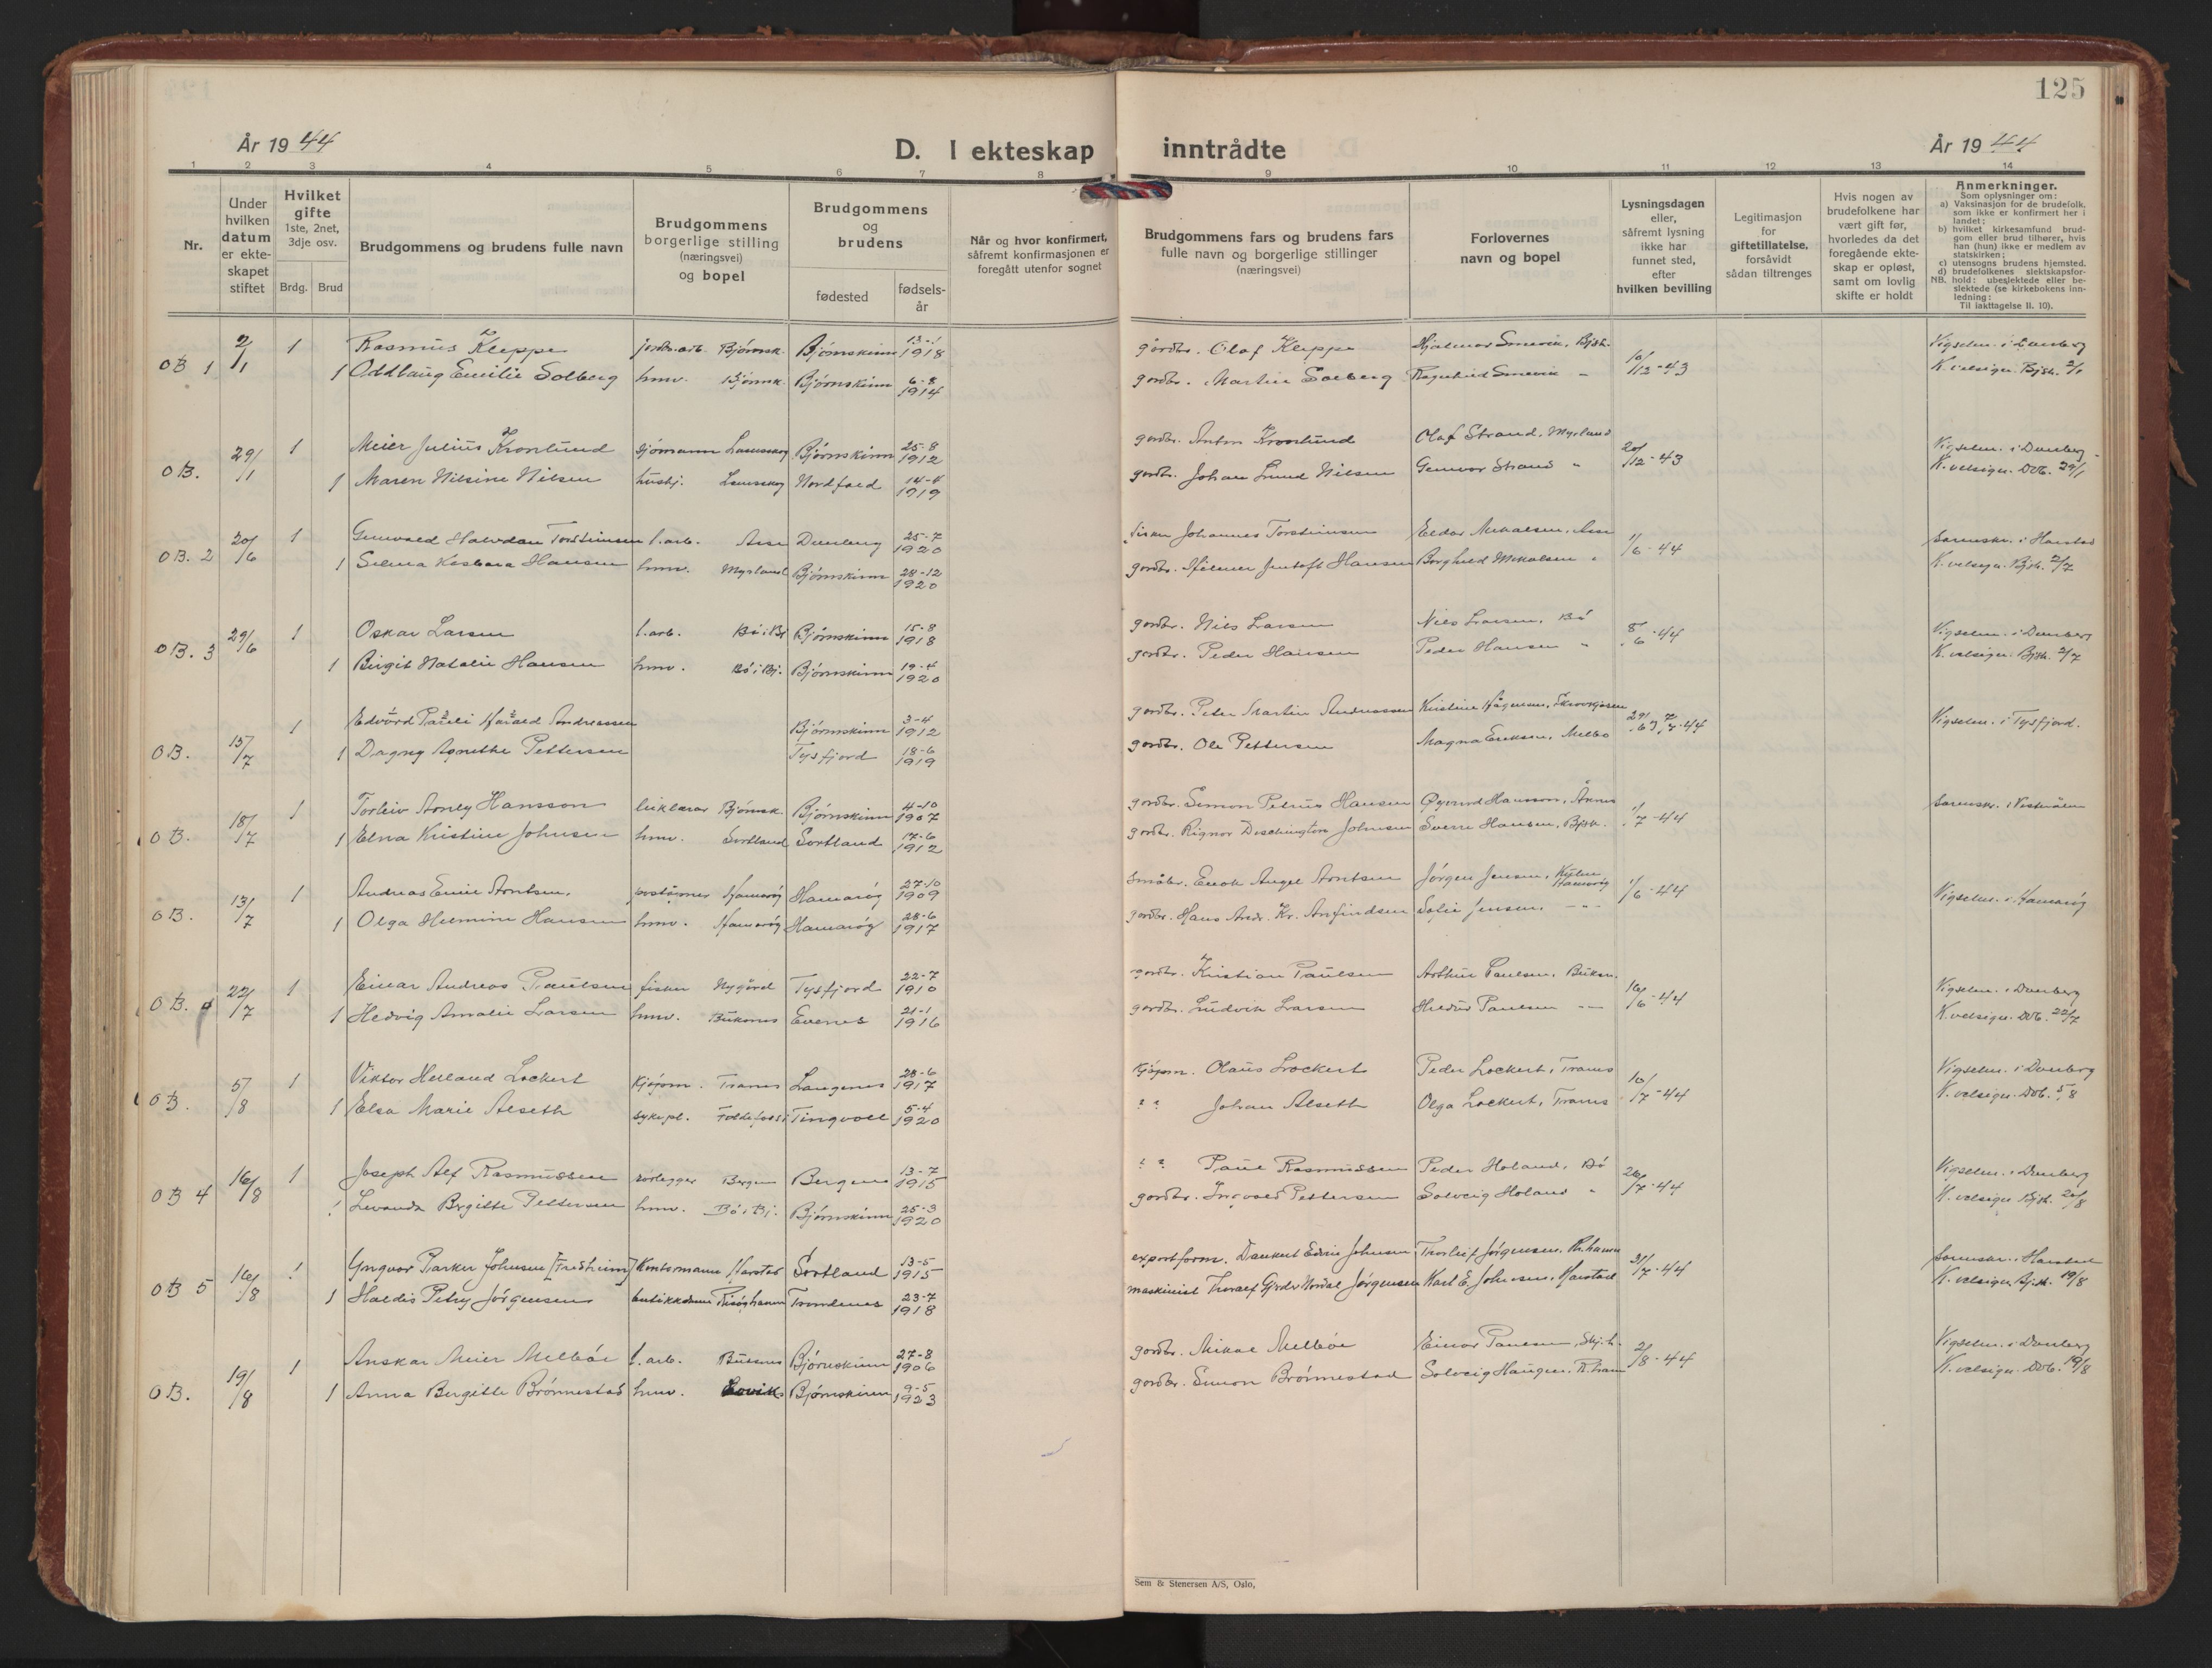 125
År 1944
D. I ekteskap inntrådte
År 1944
1 2 3 4 5 6 7 8 9 10 11 12 13 14
Nr.
Under hvilken datum er ekteskapet stiftet
Hvilket gifte 1ste, 2net, 3dje osv.
Brdg. Brud
Brudgommens og brudens fulle navn
Brudgommens borgerlige stilling (næringsvei) og bopel
Brudgommens og brudens
fødested
fødsels-år
Når og hvor konfirmert, såfremt konfirmasjonen er foregått utenfor sognet
Brudgommens fars og brudens fars fulle navn og borgerlige stillinger (næringsvei)
Forlovernes navn og bopel
Lysningsdagen eller, såfremt lysning ikke har funnet sted, efter hvilken bevilling
Legitimasjon for giftetillatelse, forsåvidt sådan tiltrenges
Hvis nogen av brudefolkene har vært gift før, hvorledes da det foregående ekteskap er opløst, samt om lovlig skifte er holdt
Anmerkninger.
Som oplysninger om:
a) Vaksinasjon for de brudefolk. som ikke er konfirmert her i landet;
b) hvilket kirkesamfund brudgom eller brud tilhører, hvis han (hun) ikke er medlem av statskirken;
c) utensogns brudens hjemsted.
d) brudefolkenes slektskapsforhold: ubeslektede eller beslektede (se kirkebokens innledning:
NB.
Til iakttagelse II. 10).
OB 1 2/1 1 Rasmus Kleppe jordbr.arb. Bjørnsk. Bjørnskinn 13-1 1918 gårdbr. Olaf Kleppe Hjalmar Bjsk. 10/12-43 Vigselm. i Dverberg
1 Oddlaug Emilie Solberg hmv. Bjørnsk. Bjørnskinn 6-8 1914 gordbr. Martin Solberg Ragnhild " K. velsign. Bjsk. 2/1
OB. 29/1 1 Meier Julius Kronlund sjømann Bjørnskinn 25-8 1912 gordbr. Anton Kronlund Olaf Strand, Myrland 20/12-43 Vigselm. i Dverberg
1 Maren Nilsine Nilsen hushj. Nordfold 14-4 1919 gordbr. Johan Lund Nilsen Gunvor Strand " K. velsign. Dvb. 29/1
OB. 2 20/6 1 Gunvald Halvdan Torsteinsen l.arb. Åse Dverberg 25-7 1920 fisker Johannes Torsteinsen Eldar Mikalsen, Åse 1/6-44 Sorenskr. i Harstad
1 Selma Hansen hmv. Myrland Bjørnskinn 28-12 1920 gordbr. Hilmer Jentoft Hansen Borghild Mikalsen " K. velsign. Bjsk. 2/7
OB. 3 29/6 1 Oskar Larsen l.arb. Bø i Bj Bjørnskinn 15-8 1918 gordbr. Nils Larsen Nils Larsen, Bø 8/6-44 Vigselm. i Dverberg
1 Birgit Natalie Hansen hmv. Bø i Bj. Bjørnskinn 19-4 1920 gordbr. Peder Hansen Peder Hansen " K. velsign. Bjsk. 2/7
OB. 15/7 1 Edvard Pareli Harald Andreassen Bjørnskinn 3-4 1912 gordbr. Peter Martin Andreassen Kristine Hågensen, Vigselm. i Tysfjord.
1 Dagny Agnethe Pettersen Tysfjord 18-6 1919 gordbr. Ole Pettersen Magna Eriksen, Melbo
OB. 18/7 1 Torleiv Arnly Hansson Bjørnsk. Bjørnskinn 4-10 1907 gordbr. Simon Petrus Hansen Øyvind Hansson, Åknes 1/7-44 Sorenskr. i Vesterålen
1 Elna Kristine Johnsen hmv. Sortland Sortland 17-6 1912 gordbr. Rignor Dischington Johnsen Sverre Hansen, Bjsk.
OB. 13/7 1 Andreas Emil Arntsen Hamarøy Hamarøy 27-10 1909 småbr. Enok Angel Arntsen Jørgen Jensen, Hamarøy 1/6-44 Vigselm. i Hamarøy
1 Olga Helmine Hansen hmv. Hamarøy Hamarøy 28-6 1917 gordbr. Hans Andr. Kr. Arfindsen Sofie Jensen, - " -
OB. 22/7 1 Einar Andreas Paulsen fisker Nygård Tysfjord 22-7 1910 gordbr. Kristian Paulsen Arthur Paulsen, Buksn. 16/6-44 Vigselm. i Dverberg
1 Hedvig Amalie Larsen hmv. Buksnes Evenes 21-1 1916 gordbr. Ludvik Larsen Hildur Paulsen - " - K. velsign. Dvb. 22/7
OB. 5/8 1 Viktor Helland Lockert kjøpm. Tranes Langenes 28-6 1917 kjøpm. Olaus Lockert Peder Lockert, Tranes 10/7-44 Vigselm. i Dverberg
1 Elsa Marie Alseth sykepl. Tingvoll 5-4 1920 " " Johan Alseth Olga Lockert, Tranes K. velsign. Dvb. 5/8
OB 4 16/8 1 Joseph Alf Rasmussen rørlegger Bergen Bergen 13-7 1915 " " Paul Rasmussen Peder Holand, Bø 26/7-44 Vigselm. i Dverberg
1 Levanda Bergitte Pettersen hmv. Bø i Bj. Bjørnskinn 25-3 1920 gordbr. Ingvald Pettersen Solveig Holand " K. velsign. Bjsk. 20/8
OB 5 16/8 1 Yngvar Parker Johnsen [Fredheim] Kontormann Harstad Sortland 13-5 1915 exportform. Dankert Edvin Johnsen Thorleif Jørgensen, R.hamn 31/7-44 Sorenskr. i Harstad
1 Haldis Petry Jørgensen butikkdame Risøyhamn Trondenes 23-7 1918 maskinist Thoralf Nordal Jørgensen Karl E. Johnsen, Harstad K. velsign. Bjsk. 19/8
OB. 19/8 1 Anskar Meier Melbøe l.arb. Buksnes Bjørnskinn 27-8 1906 gordbr. Mikal Melbøe Einar Paulsen, 2/8-44 Vigselm. i Dverberg
1 Anna Bergitte Brønnestad hmv. Lovik Bjørnskinn 9-5 1923 gordbr. Simon Brønnestad Solveig Haugen, R.hamn K. velsign. Dvb. 19/8
Sem & Stenersen A/S, Oslo,